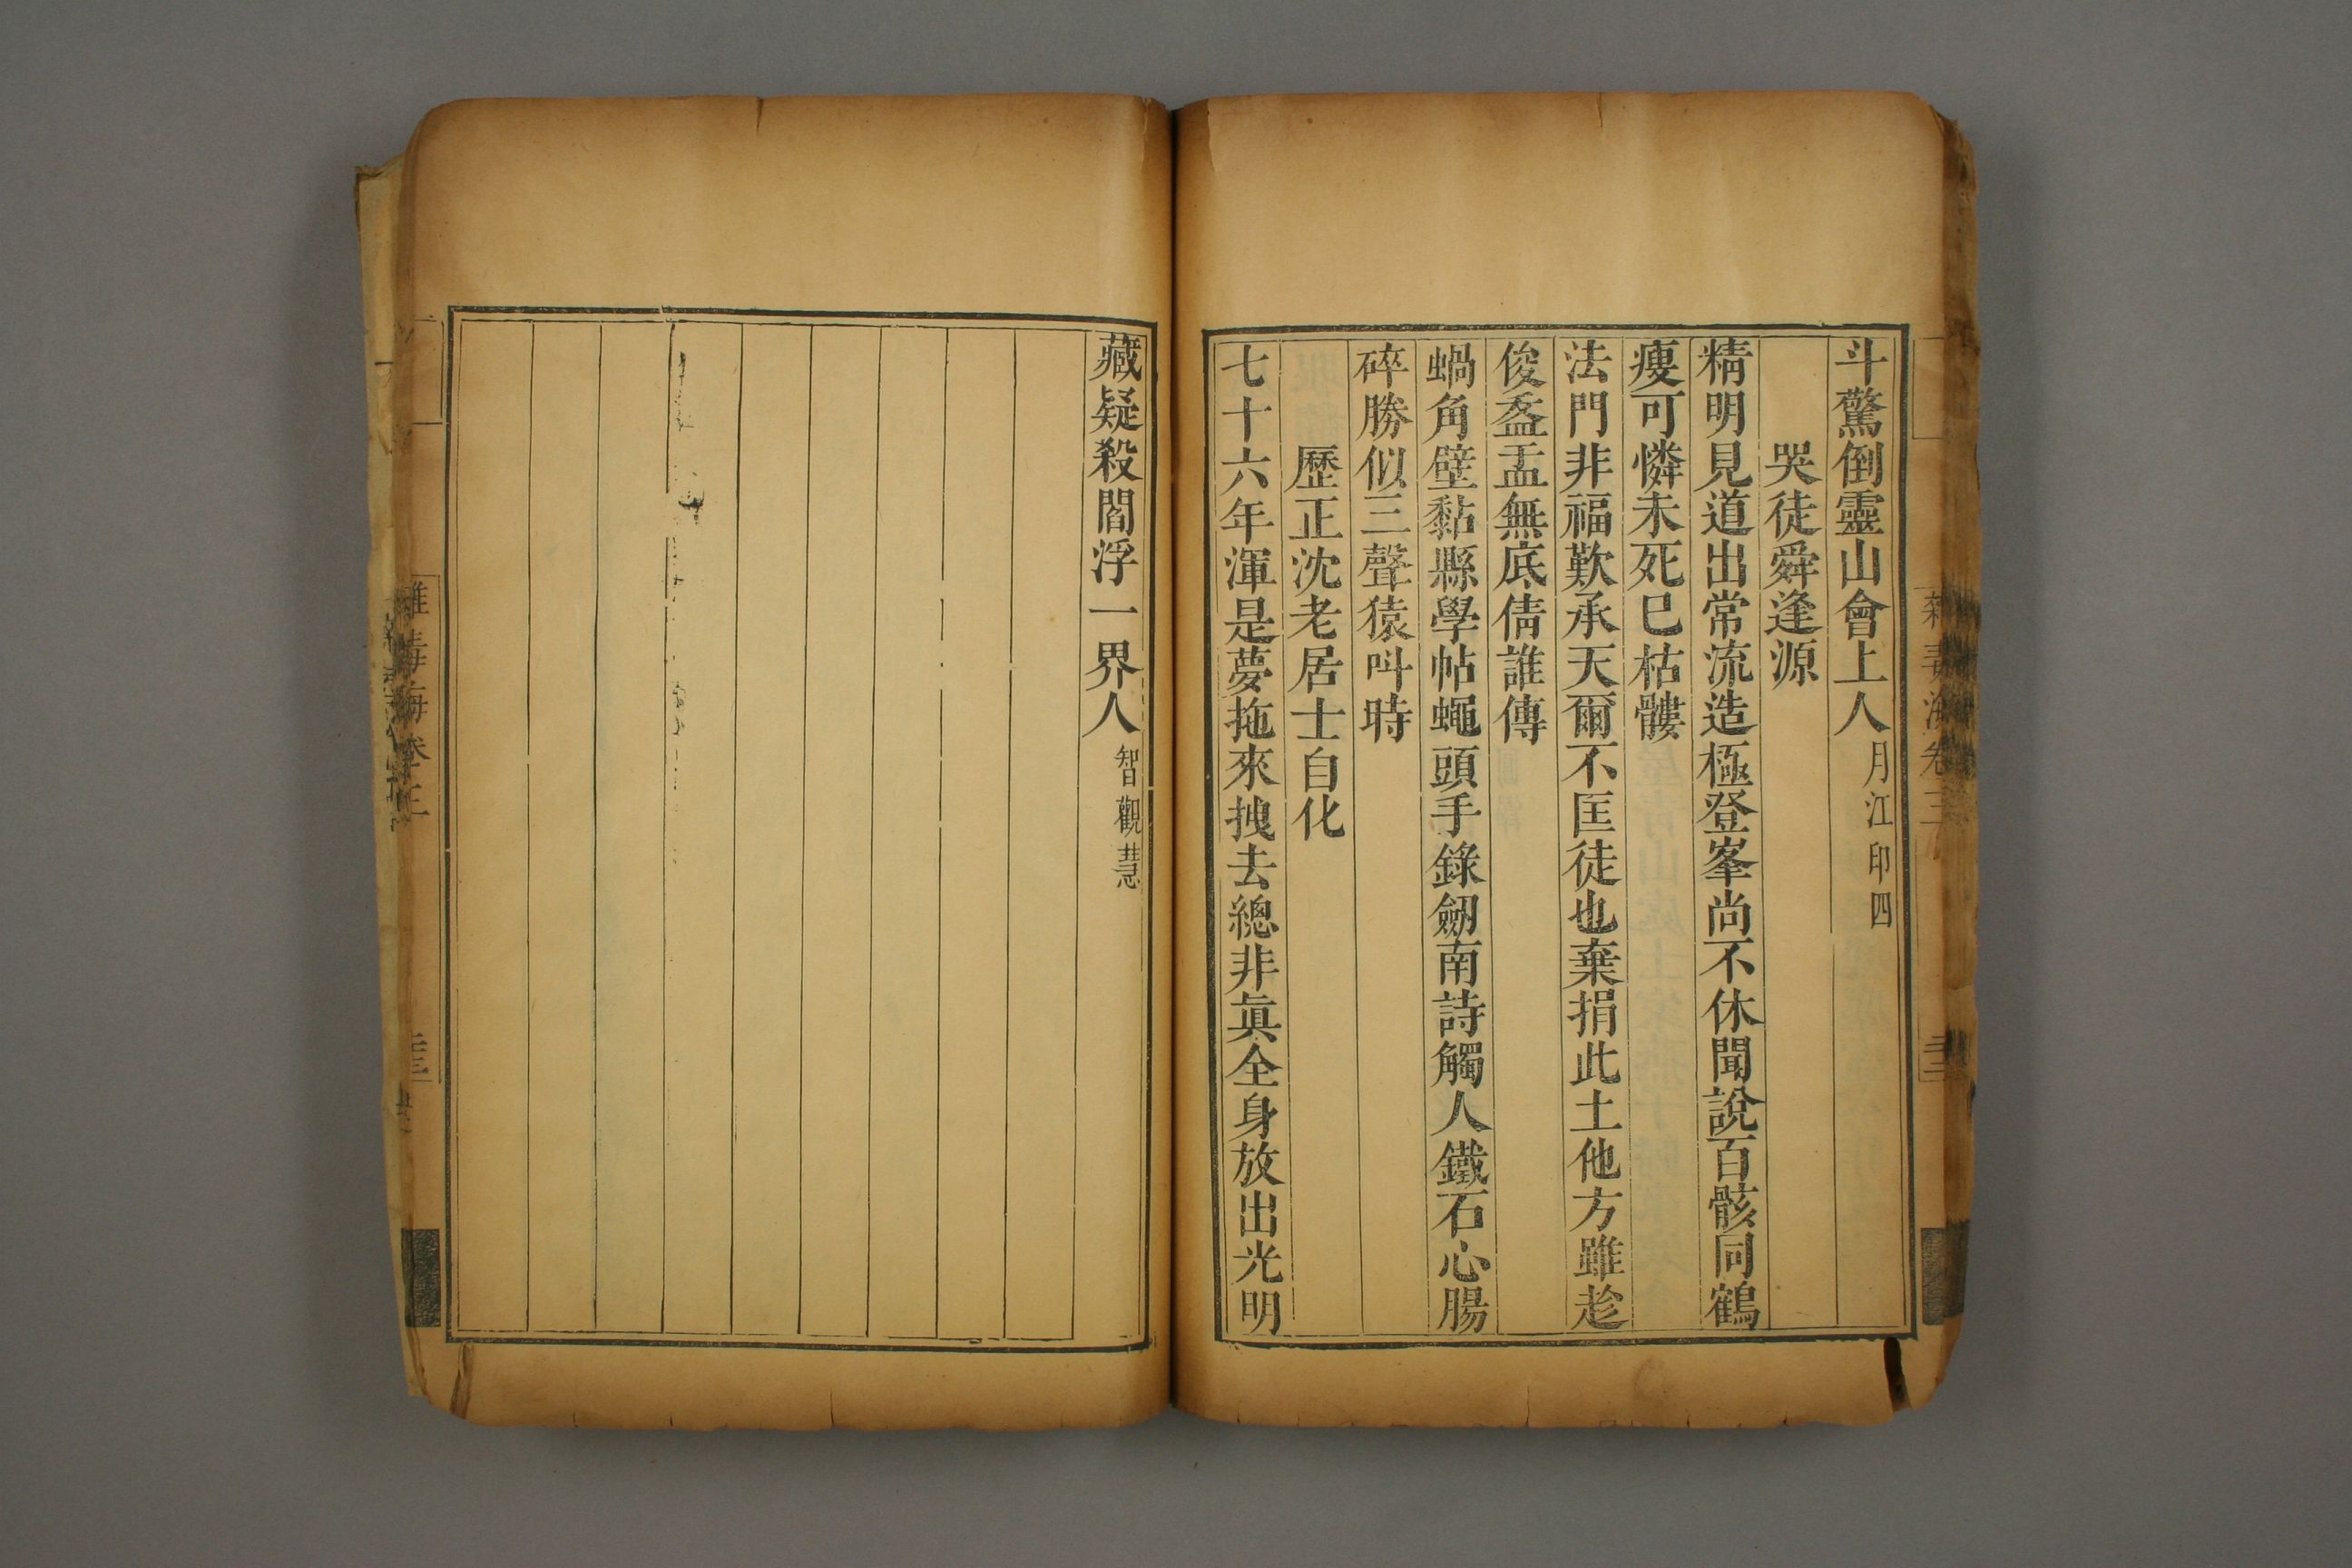 斗驚倒靈山會上人月江印四
哭徒舜逢源
精明見道出常流造極登峯尚不休聞說百骸同鶴
瘦可憐未死已枯髏
法門非福歎承天爾不匡徒也棄捐此土他方雖趁
俊盋盂無底倩誰傳
蝸角壁黏縣學帖蠅頭手錄劒南詩觸人鐵石心腸
碎勝似三聲猿呌時
歷正沈老居士自化
七十六年渾是夢拖來拽去總非眞全身放出光明
藏疑殺閻浮一界人智觀慧
雜毒海卷三